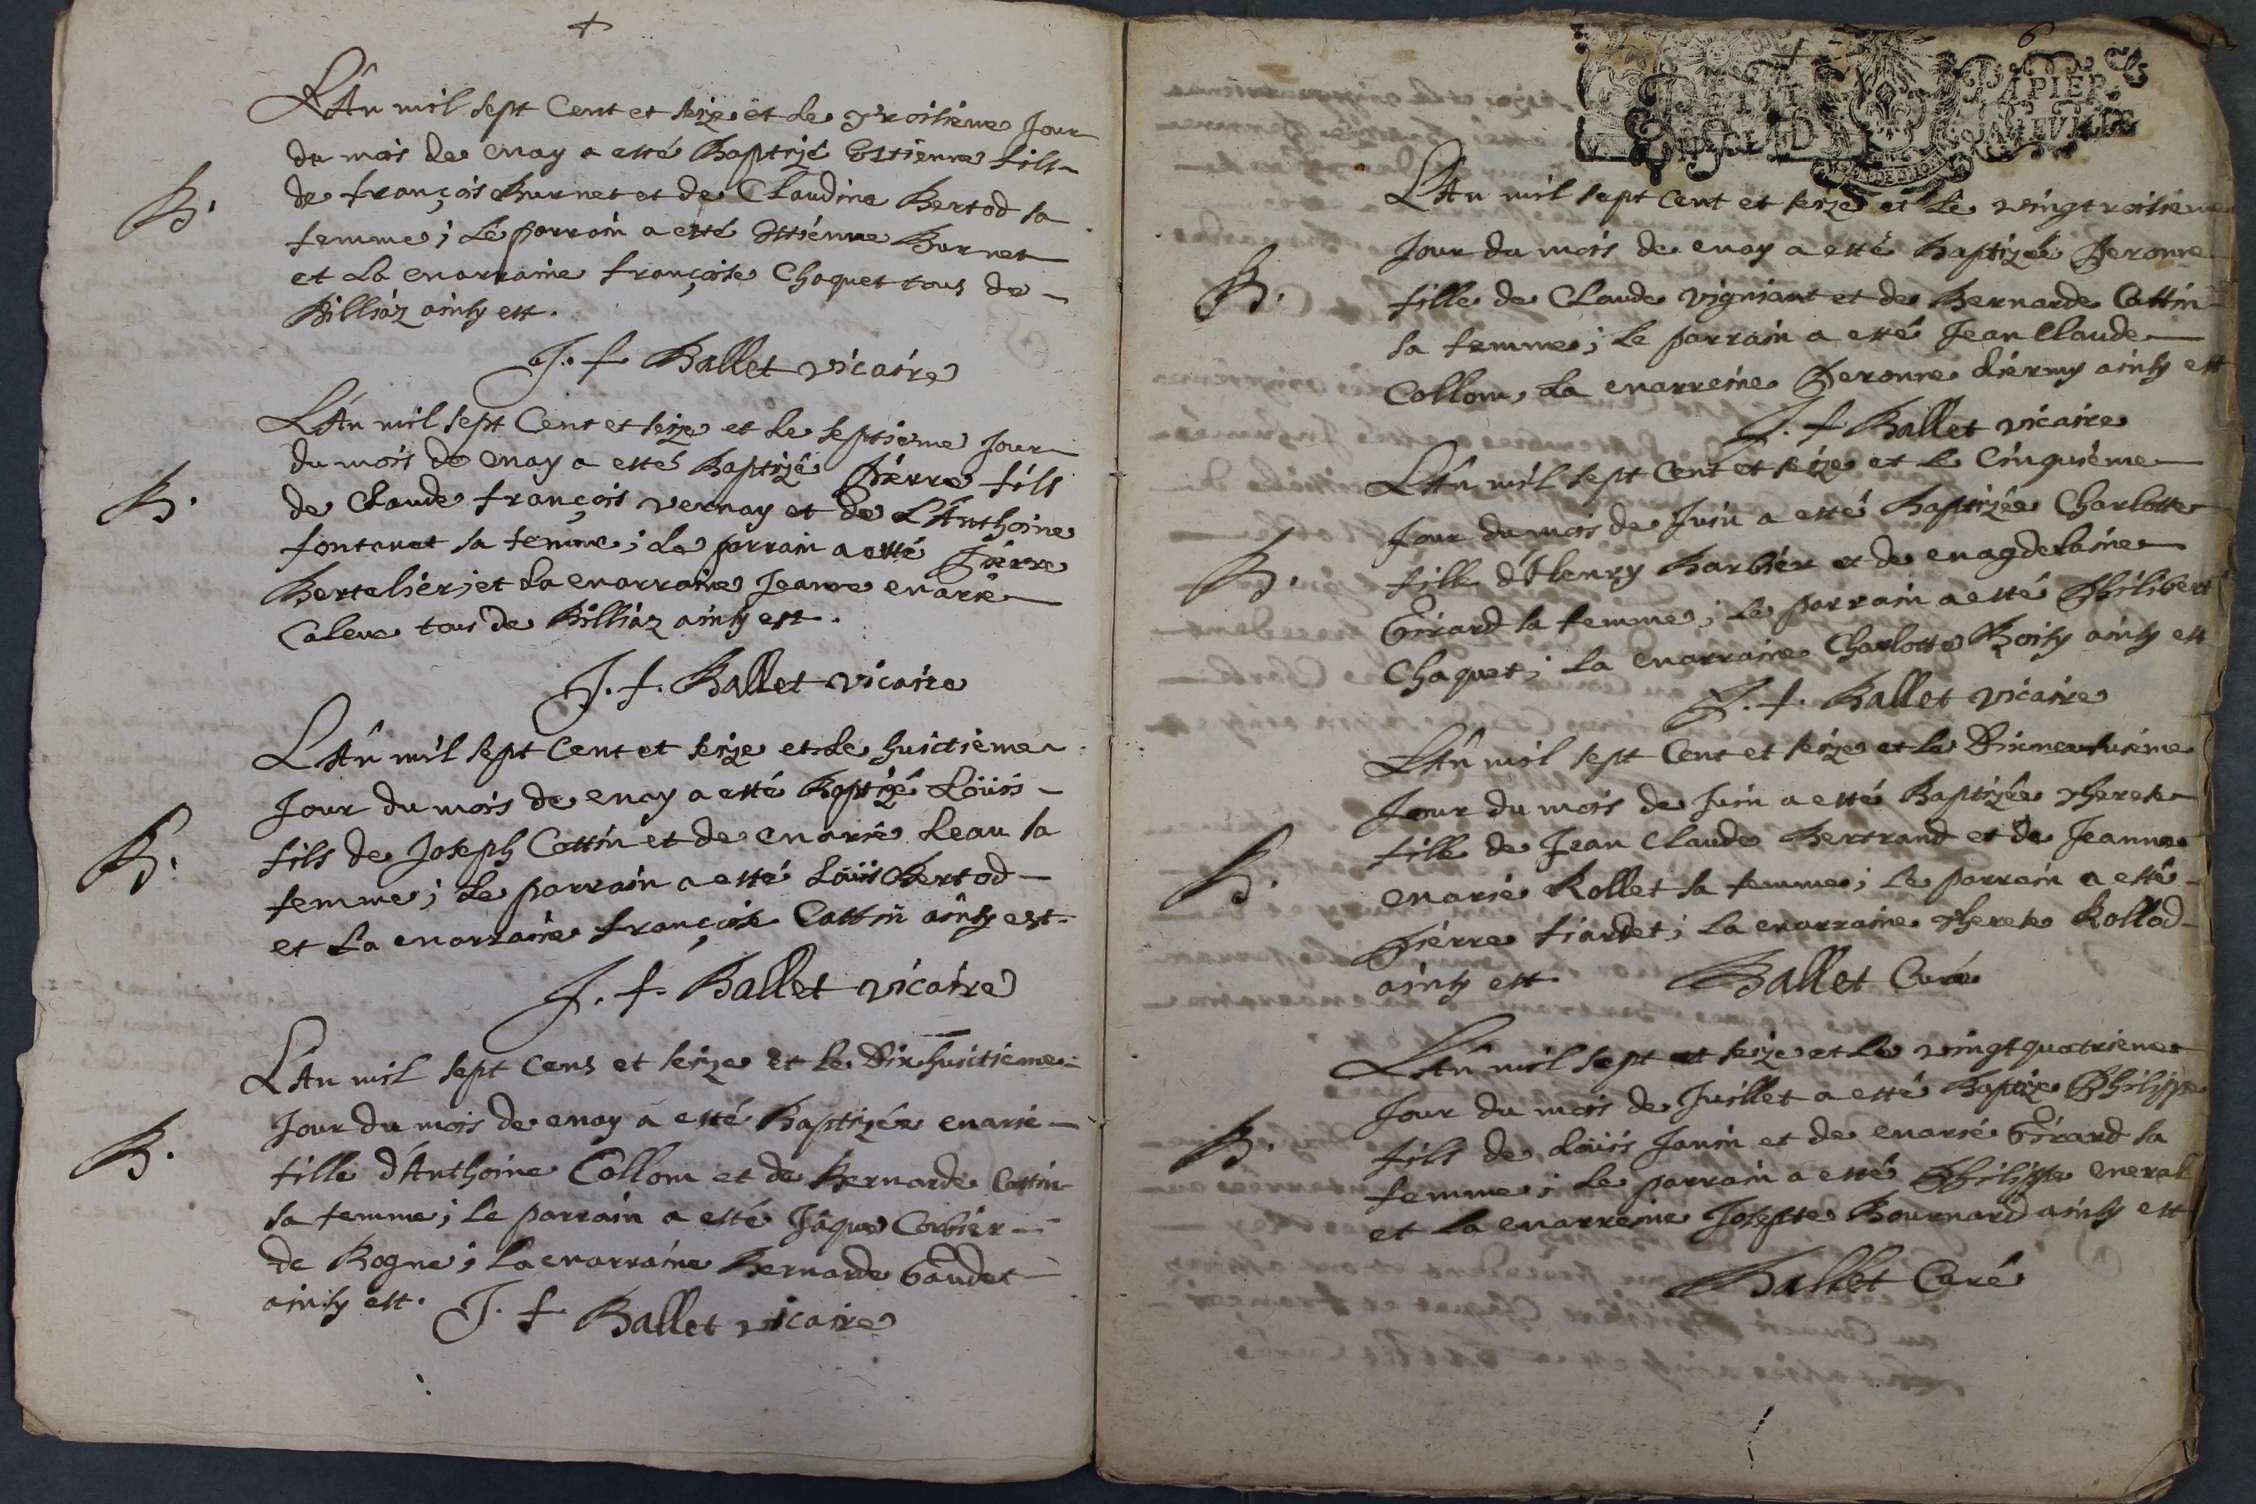 L'An mil sept Cent et seize et le Troisième Jour
du mois de may a esté Baptizé Estienne fils
B. de françois Burnet et de Claudine Bertod sa
femme; Le parrain a esté Ettienne Burnet
et La marraine françoise Chaquet tous de
Billiaz ainsy est.
J. f Ballet vicaire
L'An mil sept Cent et seize et Le septième Jour
du mois de may a esté Baptizé Pierre fils
B. de Claude françois Vernay et de L'Anthoine
fontanet sa femme; Le parrain a esté Pierre
Bertelier; et La marraine Jeanne marie
Caleue tous de Billiaz ainsy est.
J. f. Ballet vicaire
L'An mil sept Cent et seize et Le huictieme
Jour du mois de may a esté Baptizé Loüis
B. fils de Joseph Cattin et de marie Leau sa
femme; Le parrain a esté Loüis Bertod
et La marraine françoise Cattin ainsy est
J. f. Ballet vicaire
L'An mil sept Cens et seize et le Dix huictieme
Jour du mois de may a esté Baptizée marie
B. fille d'Anthoine Collom et de Bernarde Cattin
sa femme; Le parrain a esté Jâque Corbier
de Rogne; La marraine Bernarde Gaudet
ainsy est. J. f Ballet vicaire
6
PETIT PAPIER
L'An mil sept Cent et seize et Le vingtroisieme
Jour du mois de may a esté Baptizée Peronne
B. fille de Claude Vigniant et de Bernarde Cattin
sa femme; Le parrain a esté Jean Claude
Collom, La marreine Peronne diermy ainsy est
J. f. Ballet vicaire
L'An mil sept Cent et seize et Le Cinquième
Jour du mois de Juin a esté Baptizée Charlotte
B. fille d'Henry Barbier et de magdelaine
Girard sa femme; Le parrain a esté Philibert
Chaquet; La marraine Charlotte Boisy ainsy est
J. f. Ballet vicaire
L'An mil sept Cent et seize et Le Dixneufuième
Jour du mois de Juin a esté Baptizée Therese
B. fille de Jean Claude Bertrand et de Jeanne
marie Rollet sa femme; Le parrain a esté
Pierre fiardet; La marraine Therese Rollod
ainsy est. Ballet Curé
L'An mil sept et seize et Le vingtquatrieme
Jour du mois de Juillet a esté Baptize Philippe
B. fils de Loüis Janin et de marie Girard sa
femme; Le parrain a esté Philippe meral
et La marreine Josepte Bournard ainsy est
Ballet Curé